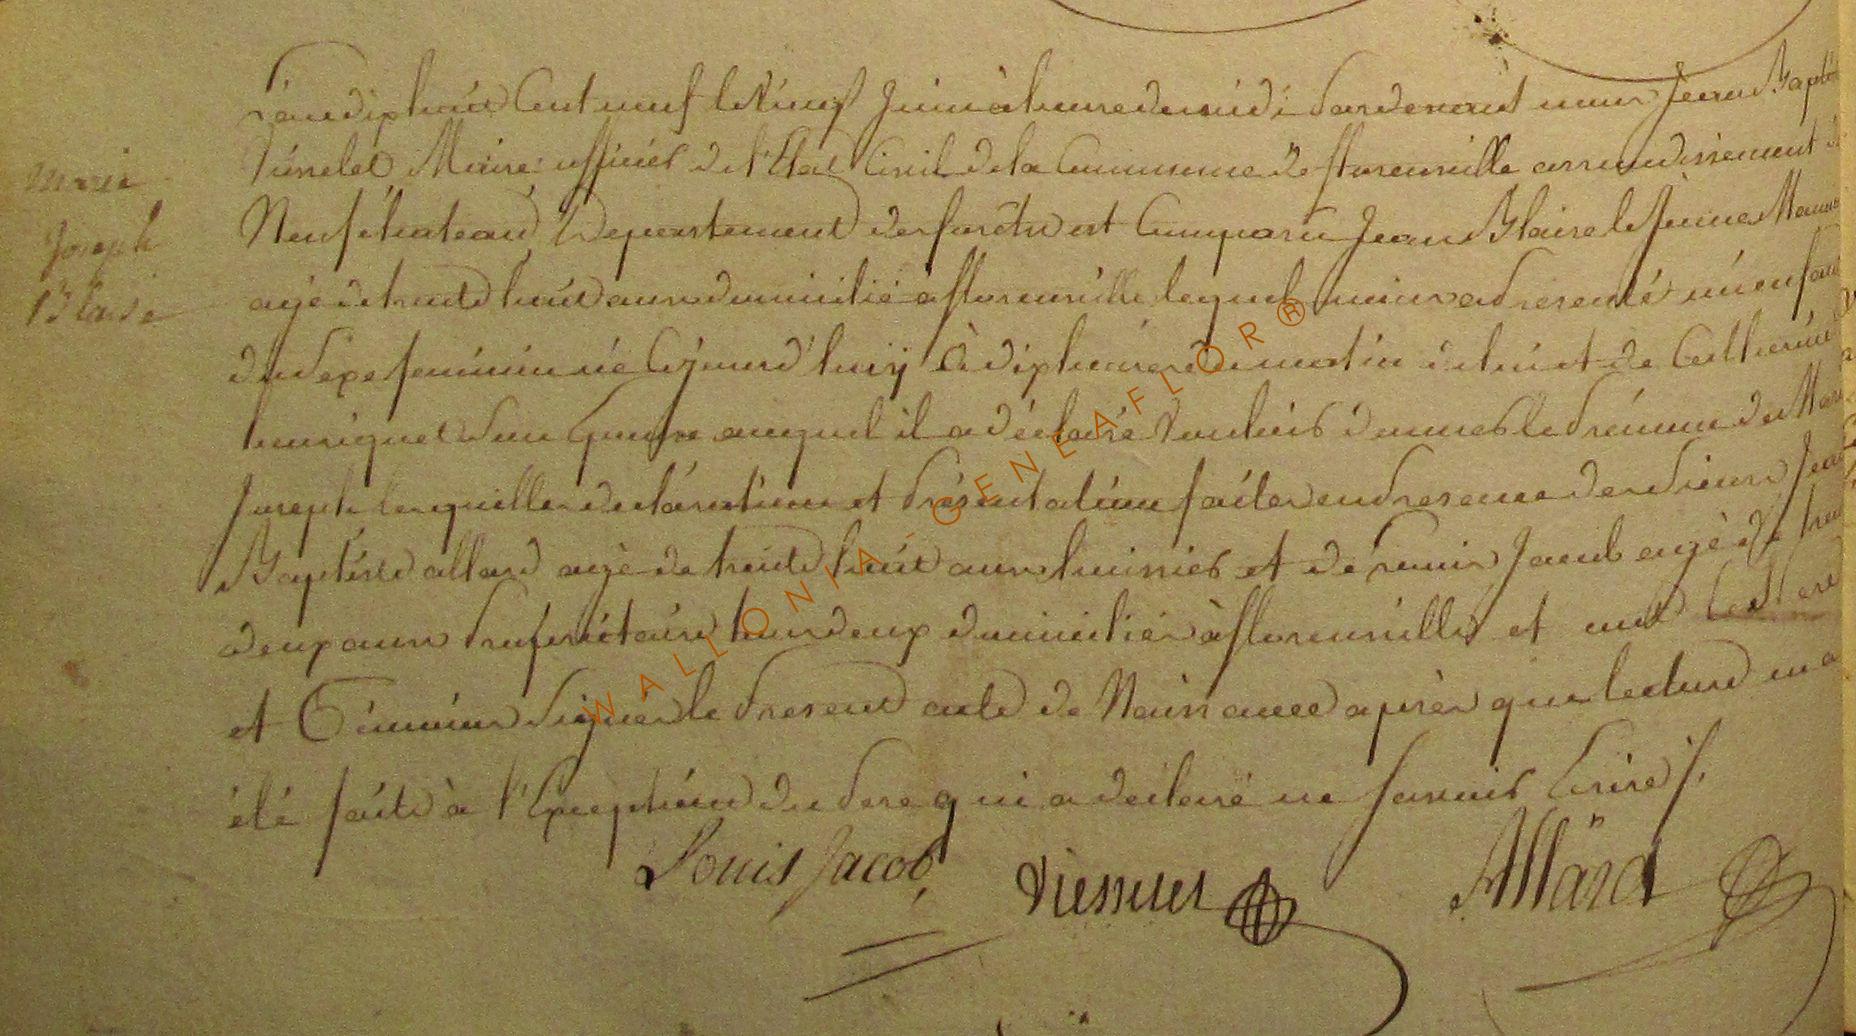 Marie
Joseph
Blaise
L'an dix huit Cent neuf le vingt Juin à heure de midi pardevant nous Jean Baptiste
Maire officier de l'Etat Civil de la Commune de florenville arrondissement de
Neufchateau Departement des forêts est Comparu Jean Blaise le Jeune
agé de trente huit ans domicilié a florenville lequel nous a presenté un enfant
du sexe feminin né Cejourd'huij à dix heures de matin de lui et de Catherine
henriquet son Epouse auquel il a déclaré vouloir donner le prénom de Marie
Joseph lesquelles declaration et présentation faites en presence des sieurs Jean
Baptiste allard agé de trente huit ans huissier et de Louis Jacob agé de trente
deux ans tous deux domiciliés à florenville et ont le pere
et Témoins signer le present acte de Naissance après que lecture en a
été faite à l'Exception du pere qui a declaré ne savoir Ecrire
Louis Jacob
Allard
WALLONIA - GENEAFLOR®